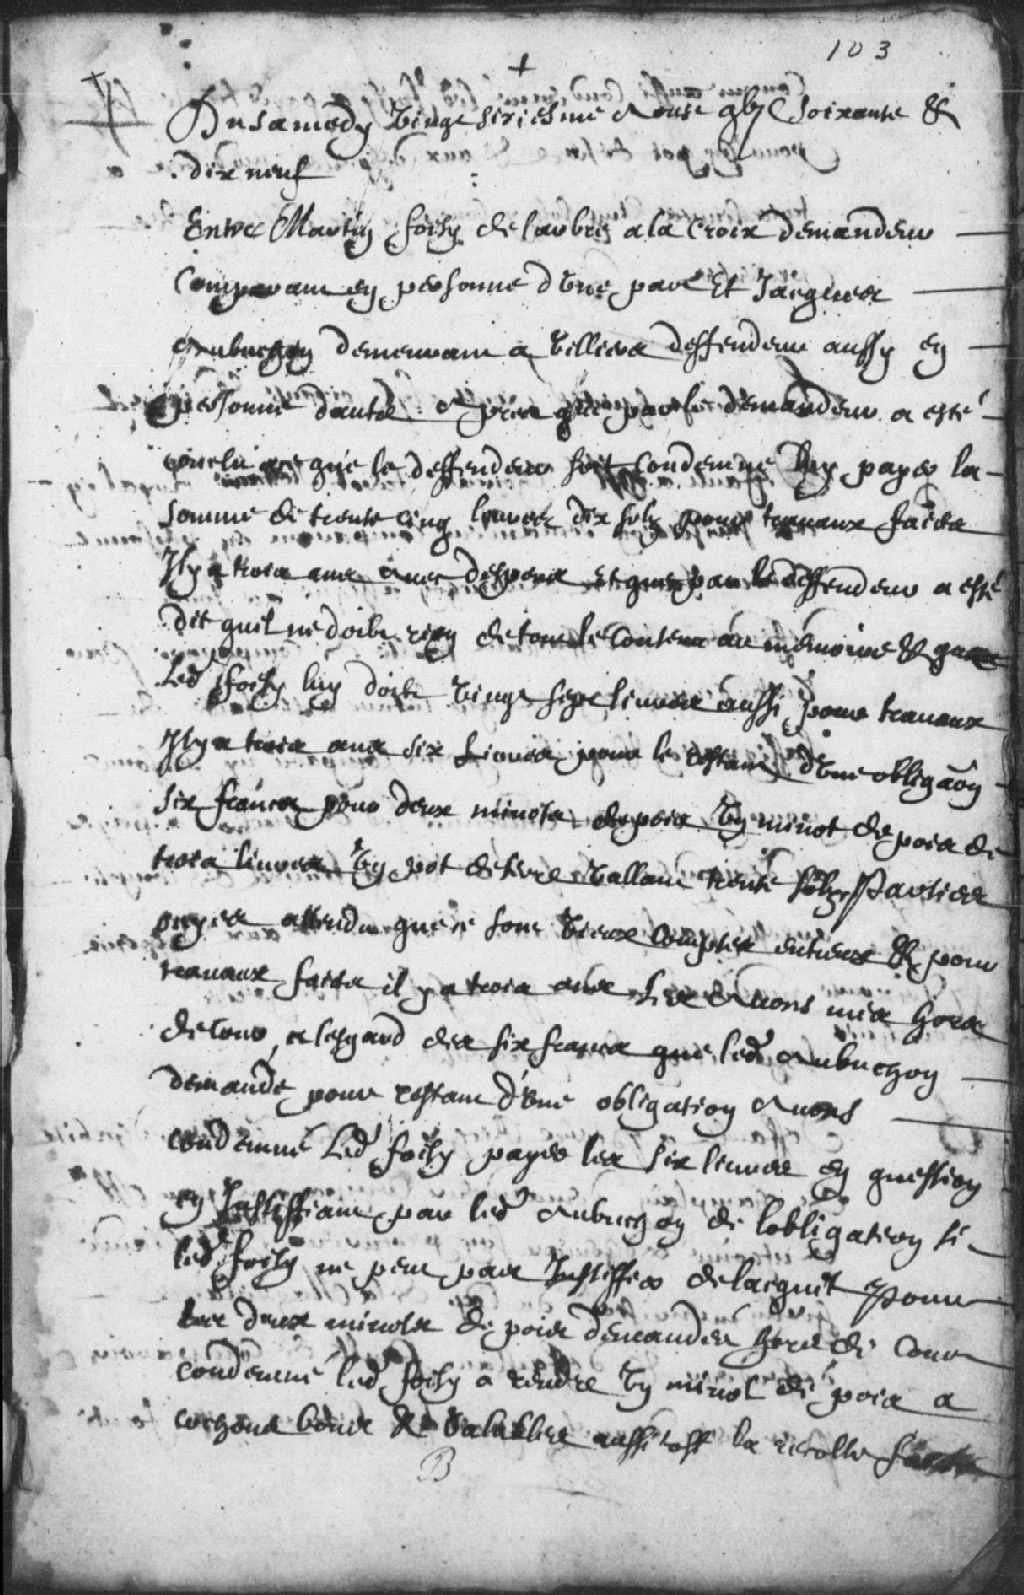 103
Du samedy vingt sixiesme Aoust gbjC soixante &
dix neuf
Entre Martin foisy de larbre a la Croix demandeur
Comparant en personne dune part Et Jacques
Aubuchon demeurant a villiers deffendeur aussy en
personne dautre Apres que par le demandeur a esté
conclu ace que le deffendeur soit condemne luy payer la
somme de trente cinq livres dix solz pour travaux faits
Il y a trois ans avec despens Et que par le deffendeur a esté
dit quil ne doibt rien de tout le contenu au memoire & que
Led foisy luy doibt vingt sept livres aussi pour travaux
Il y a trois ans six livres pour le restant dune obligaon
six francs pour deux minots de pois un minot de pois de
trois livres un pot de terre vallant trente solz Parties
ouyes attendu que ce sont vieux comptes entreux & pour
travaux faits il y a trois ans Les Avons mis hors
de Cour, a lesgard des six francs que led Aubuchon
demande pour restant dune obligation Avons
condemné Led foisy payer les six livres en question
en Justiffiant par led Aubuchon de lobligation si
led foisy ne peut pas Justiffier de lacquit Pour
les deux minots de pois demandés hors de Cour
condemné led foisy a rendre un minot de pois a
cochons bons & valables aussitost la recolte faite